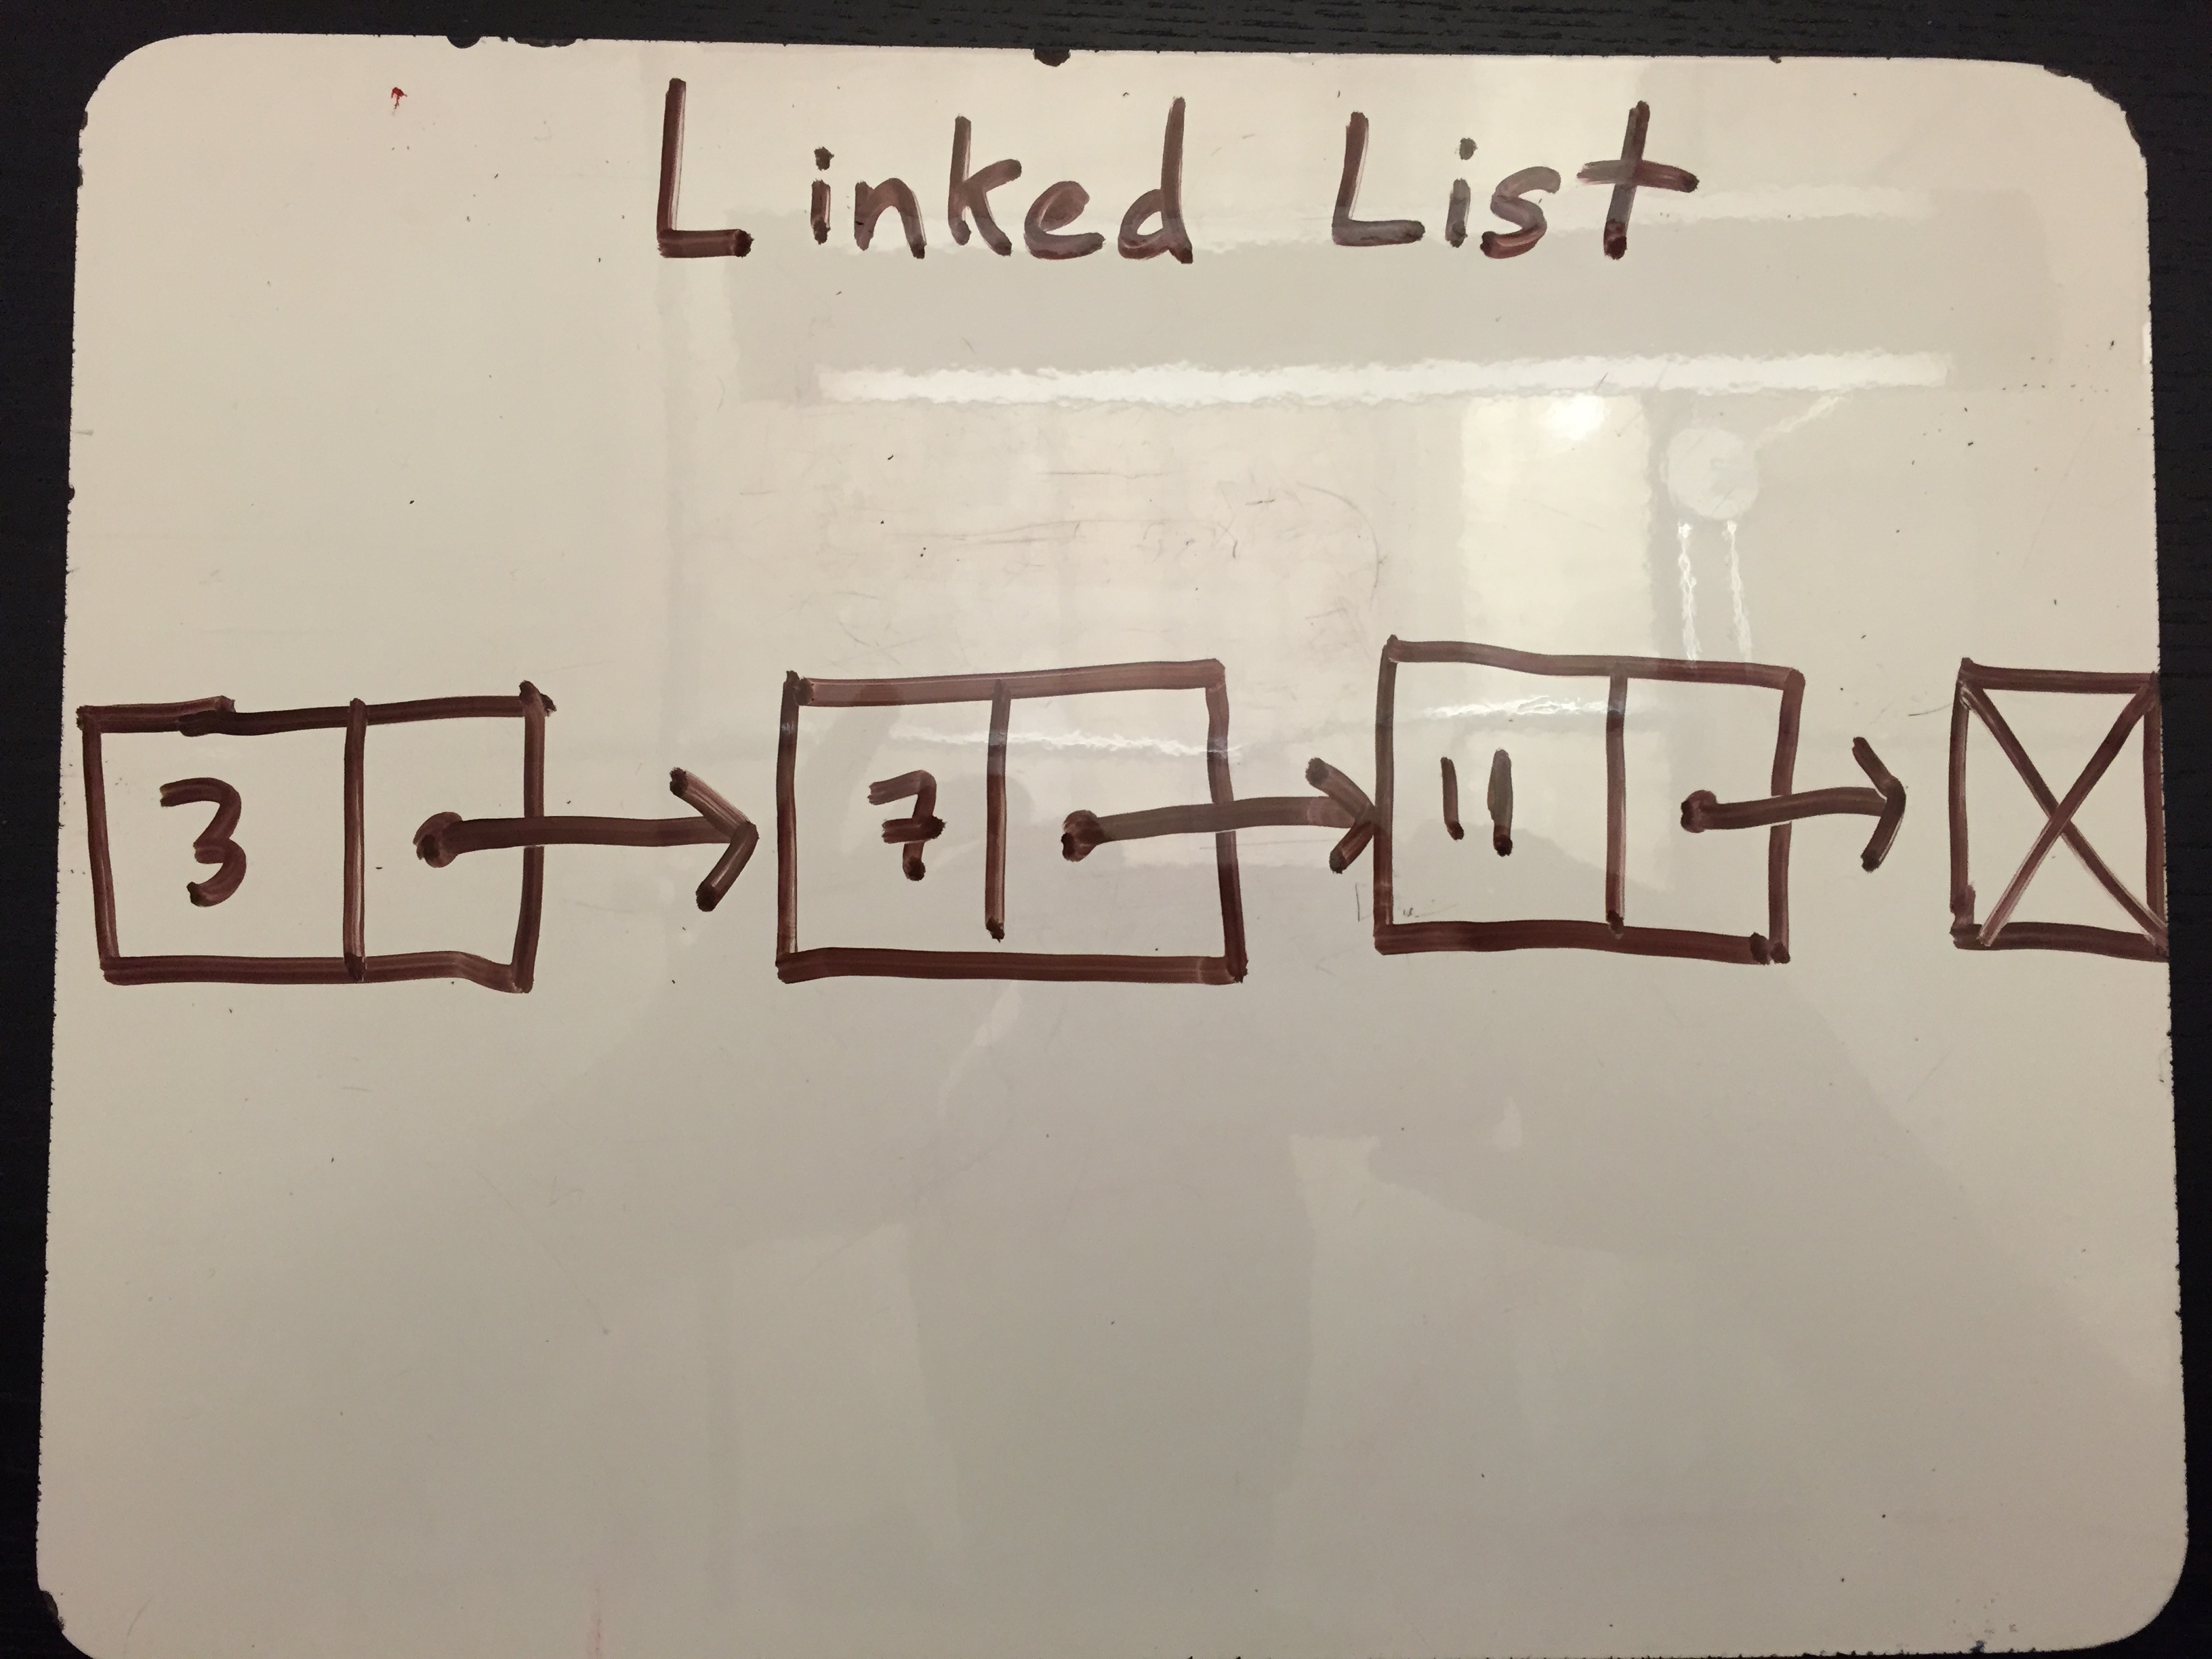 Linked List
3 7 11